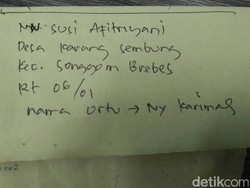 NN. Susi Afitriyani
Desa Karang Sembung
Kec. Songgom Brebes
Rt 06/01
nama ortu → Ny Karimah
detikcom